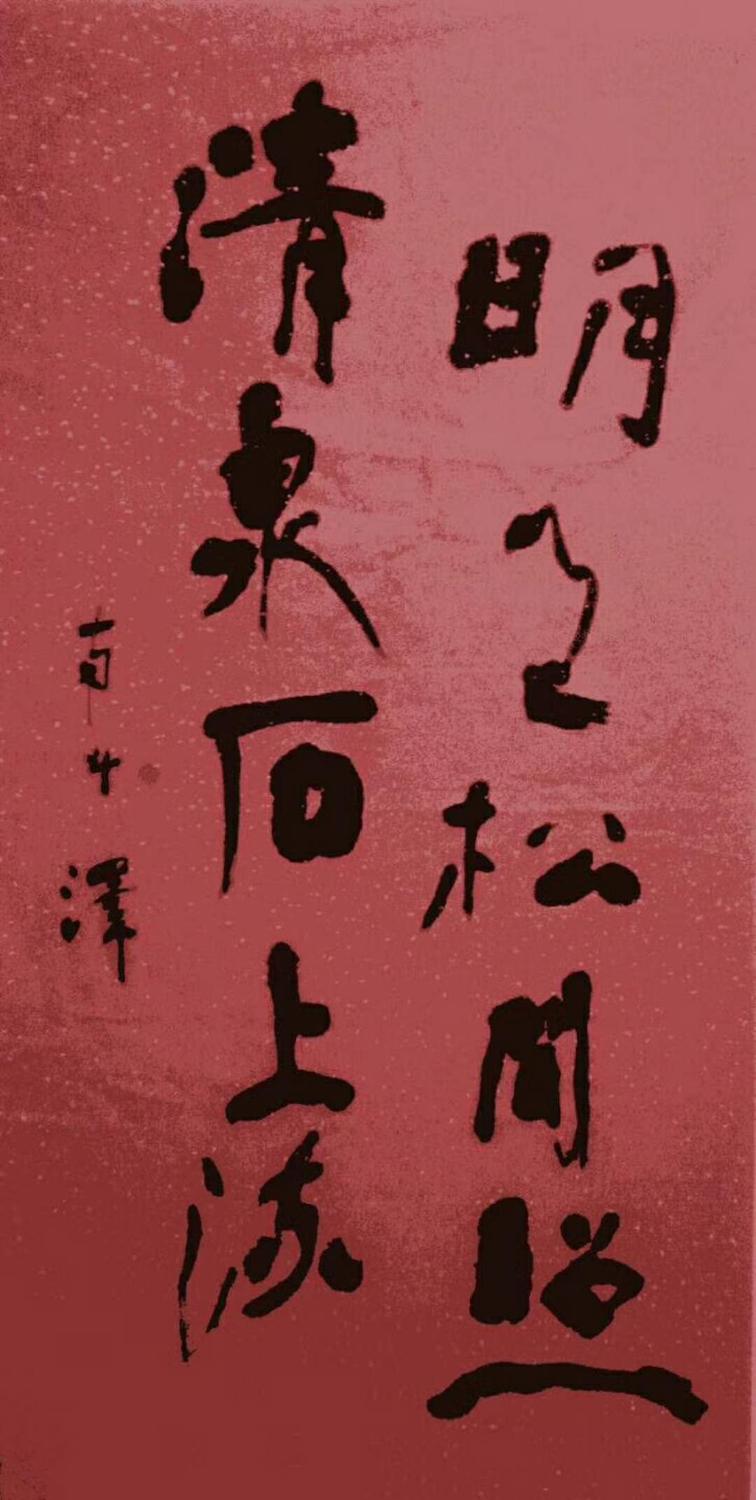 明月松間照
清泉石上流
澤